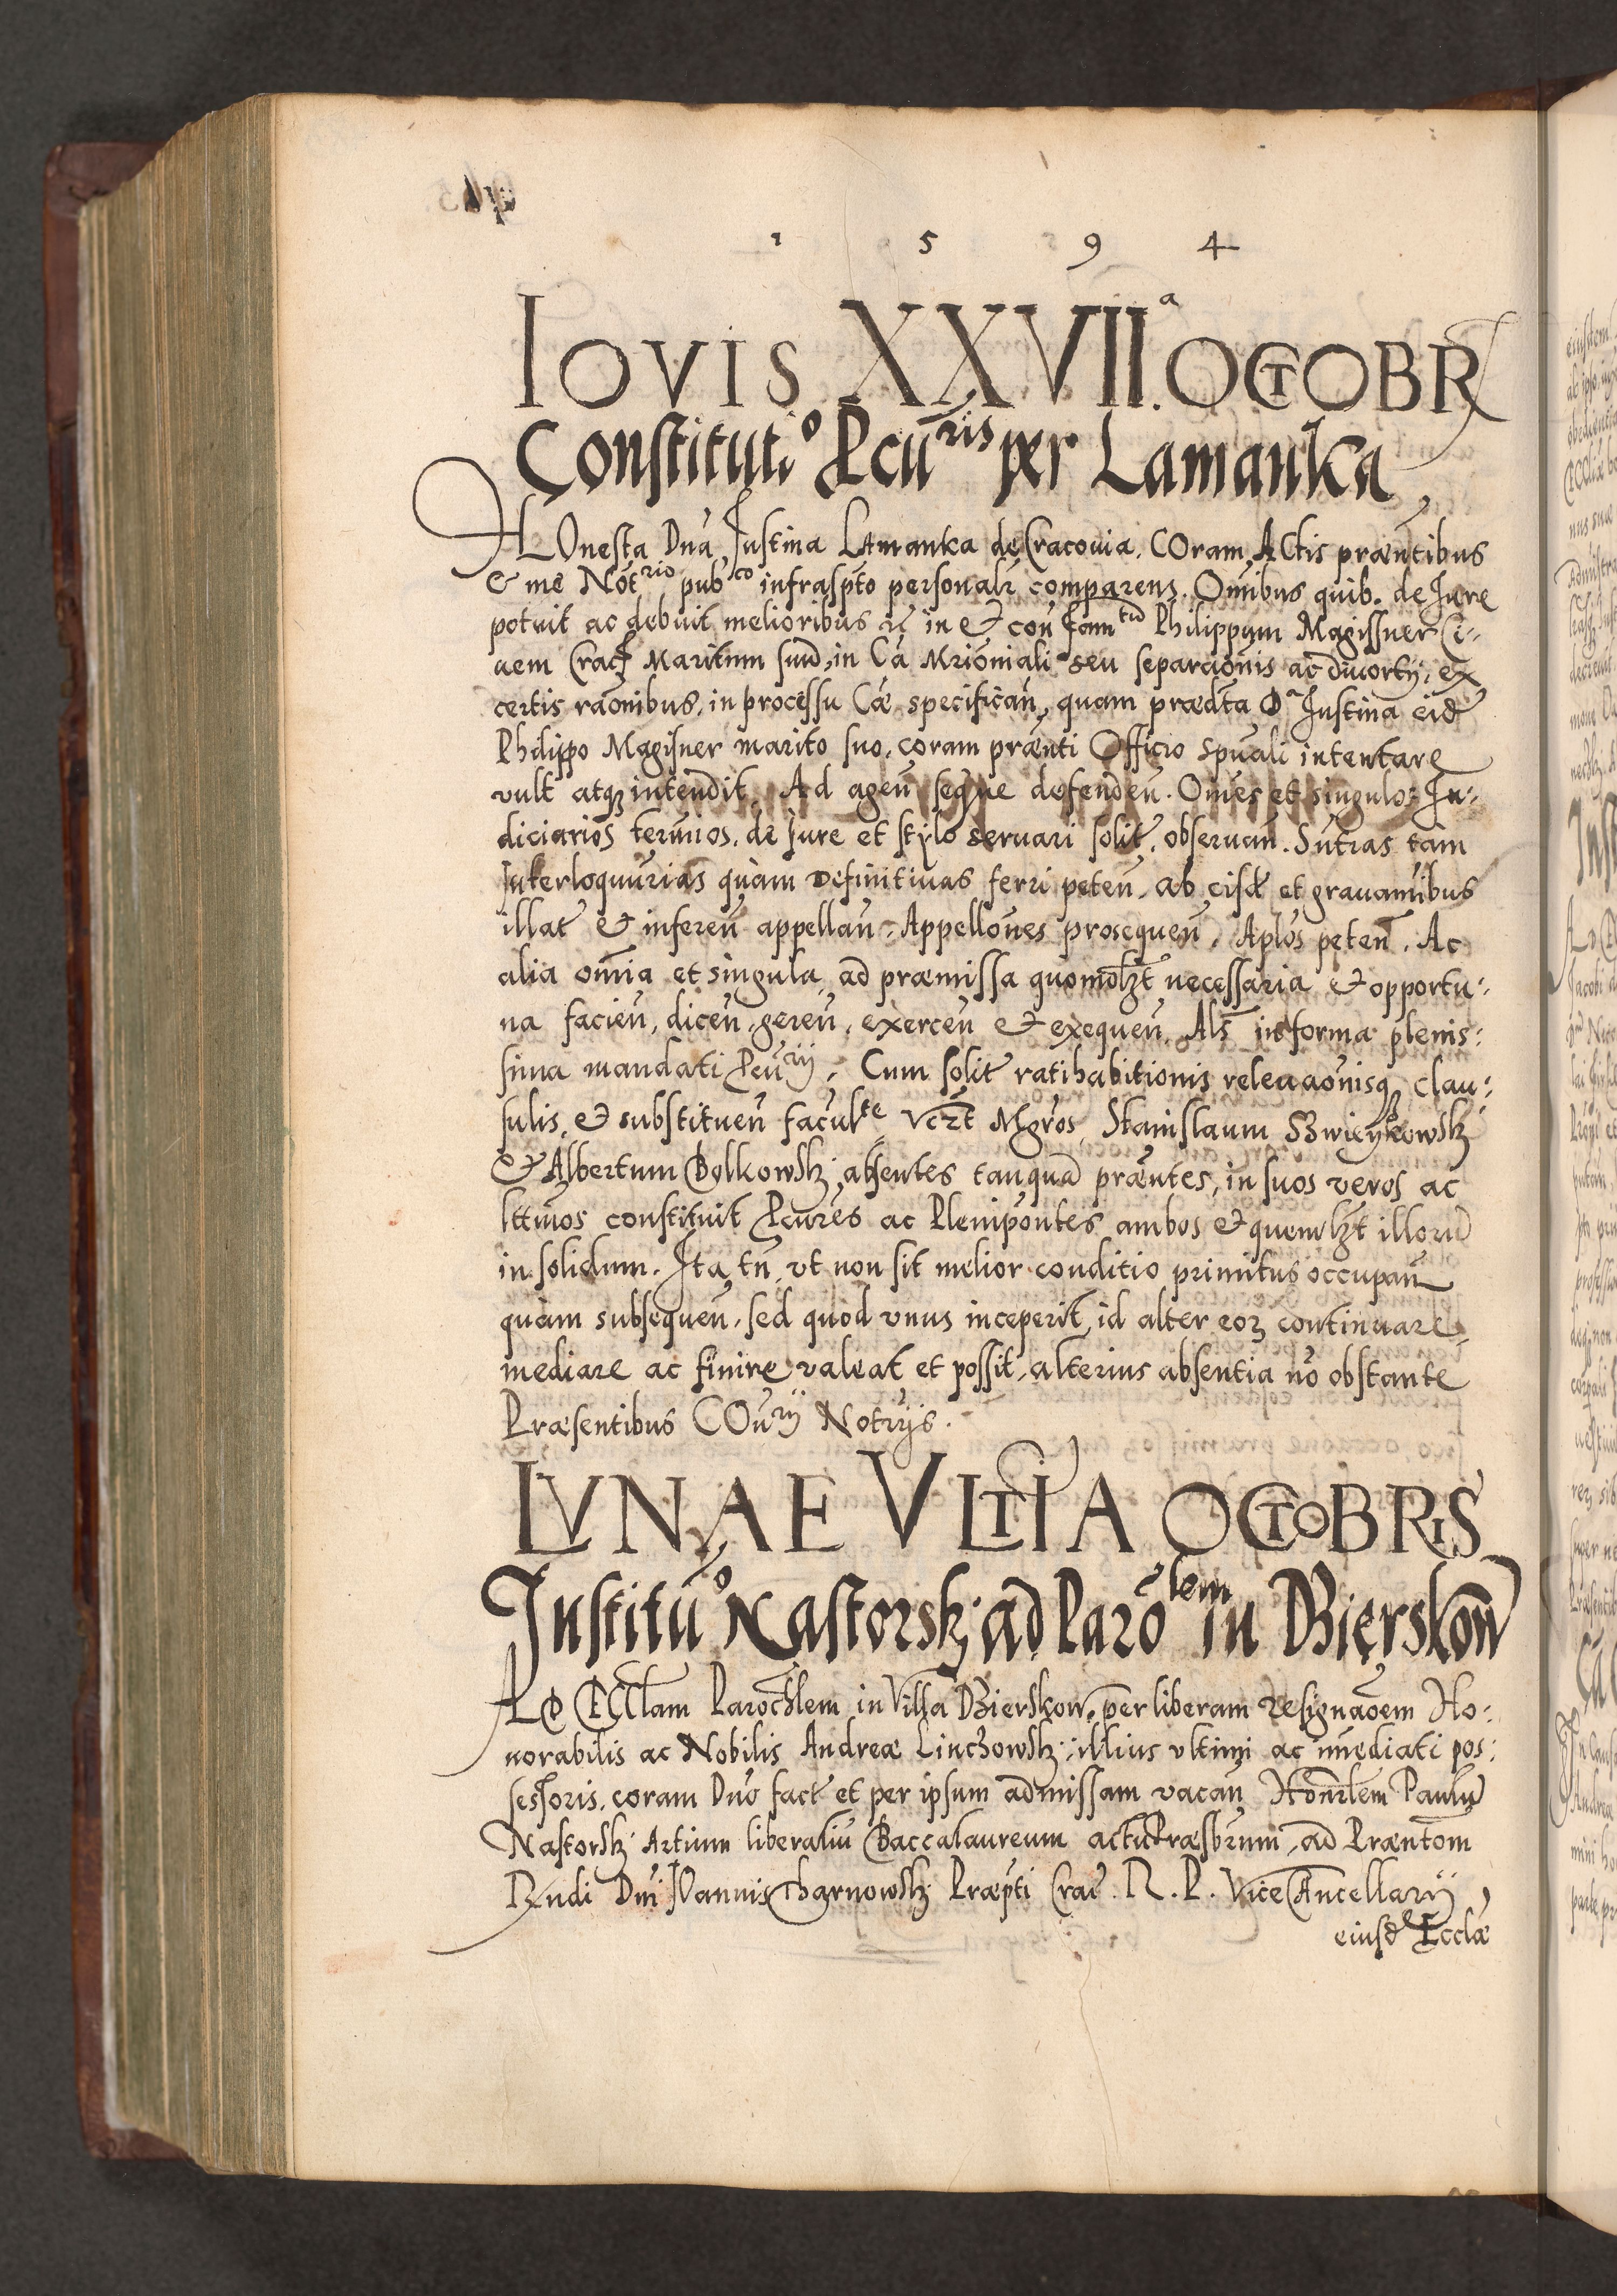 1 5 9 4
IOVIS XXVIIª. OCTOBR
Constitutio Pcuriis per Lamanka
HOnesta Dna Justina Lamanka de Cracouia. COram ACtis præntibus
& me Notrio pubco infraspto personalr comparens. Omibus quib. de Jure
potuit ac debuit melioribus &c in & con famtu Philippum Magissner Ci-
uem Crac Maritum suu, in Ca Mrioniali seu separaonis ac diuortij, ex
certis raonibus, in processu Cæ specifican, quam prædta Da Justina eid
Philippo Magisner marito suo, coram prænti Officio spuali intentare
vult atq intendit. Ad agen seque defenden. Omes et singulos Ju-
diciarios termnos, de Jure et stylo seruari solit, obseruan. Sntras tam
Interloquurias quàm Definitiuas ferri peten, ab eisd et grauamibus
illat & inferen appellan. Appellones prosequen, Aplos peten. Ac
alia omia et singula ad præmissa quomolzt necessaria & opportu-
na facien, dicen, geren, exercen & exequen. Als in forma plenis-
sima mandati Pcurij. Cum solit ratihabitionis releuaonisq clau-
sulis, & substituen faculte Vczt Mgros, Stanislaum Szwieykowsk
& Albertum Bylkowsk, absentes tanqua præntes, in suos veros ac
lttmos constituit Pcures ac Plenipontes ambos & quemlzt illoru
in solidum. Ita tn vt non sit melior conditio primitus occupan
quàm subsequen, sed quod vnus inceperit, id alter eoz continuare,
mediare ac finire valeat et possit, alterius absentia no obstante
Præsentibus COurij Notrijs.
LVNAE VLTIA OCTOBRIS
Institu° Nastorsk ad Parolem in Dzierskow
AD ECClam Parochlem in Villa Dzierskow, per liberam resignaoem Ho-
norabilis ac Nobilis Andreæ Linchowsk, illius vltimi ac imediati pos-
sessoris, coram Dno fact et per ipsum admissam vacan Honrlem Paulu
Nastorsk Artium liberaliu Baccalaureum actu Præsbrum, ad Præntom
Rndi Dni JOannis Tharnowsk Præpti Crac. R. P. ViceCancellarij,
eiusd Ecclæ